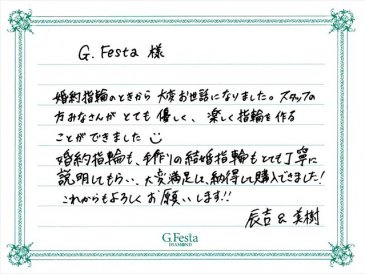 G. Festa 様
婚約指輪のときから大変お世話になりました。スタッフの
方みなさんがとても優しく、楽しく指輪を作る
ことができました
婚約指輪も、手作りの結婚指輪もとても丁寧に
説明してもらい、大変満足し、納得して購入できました!
これからもよろしくお願いします!!
辰吉 & 美樹
G.Festa
DIAMOND